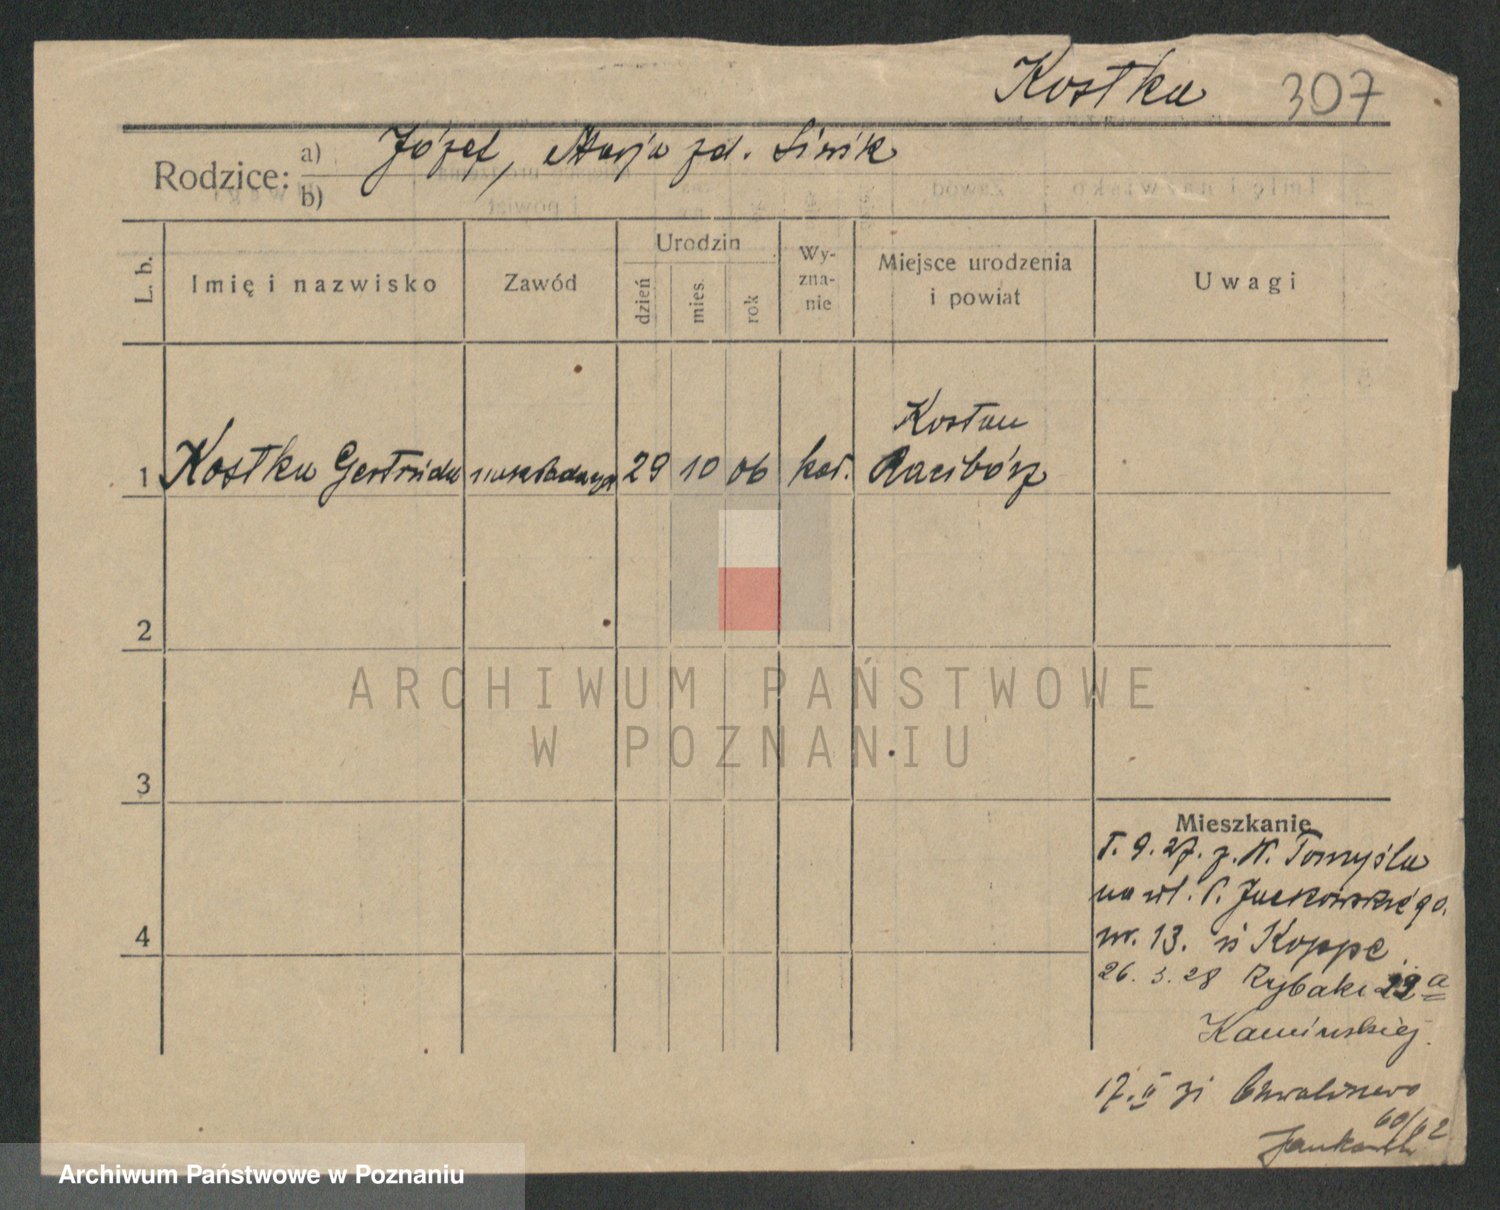 Kostka 307
Rodzice: a) Józef, Marja zd. Siwik
b)
L. b.
Imię i nazwisko
Zawód
Urodzin
dzień
mies.
rok
Wy-
zna-
nie
Miejsce urodzenia
i powiat
Uwagi
1 Kostka Gertruda 29 10 06 kat. Racibórz
2
3
4
Mieszkanie
1. 9. 27. z. N. Tomyśla
na ul. P. Jackowskiego
nr. 13. u Koppe
26. 3. 28 Rybaki 22 a
Kamińskiej
17. II 31
60/62
ARCHIWUM PAŃSTWOWE
W POZNANIU
Archiwum Państwowe w Poznaniu